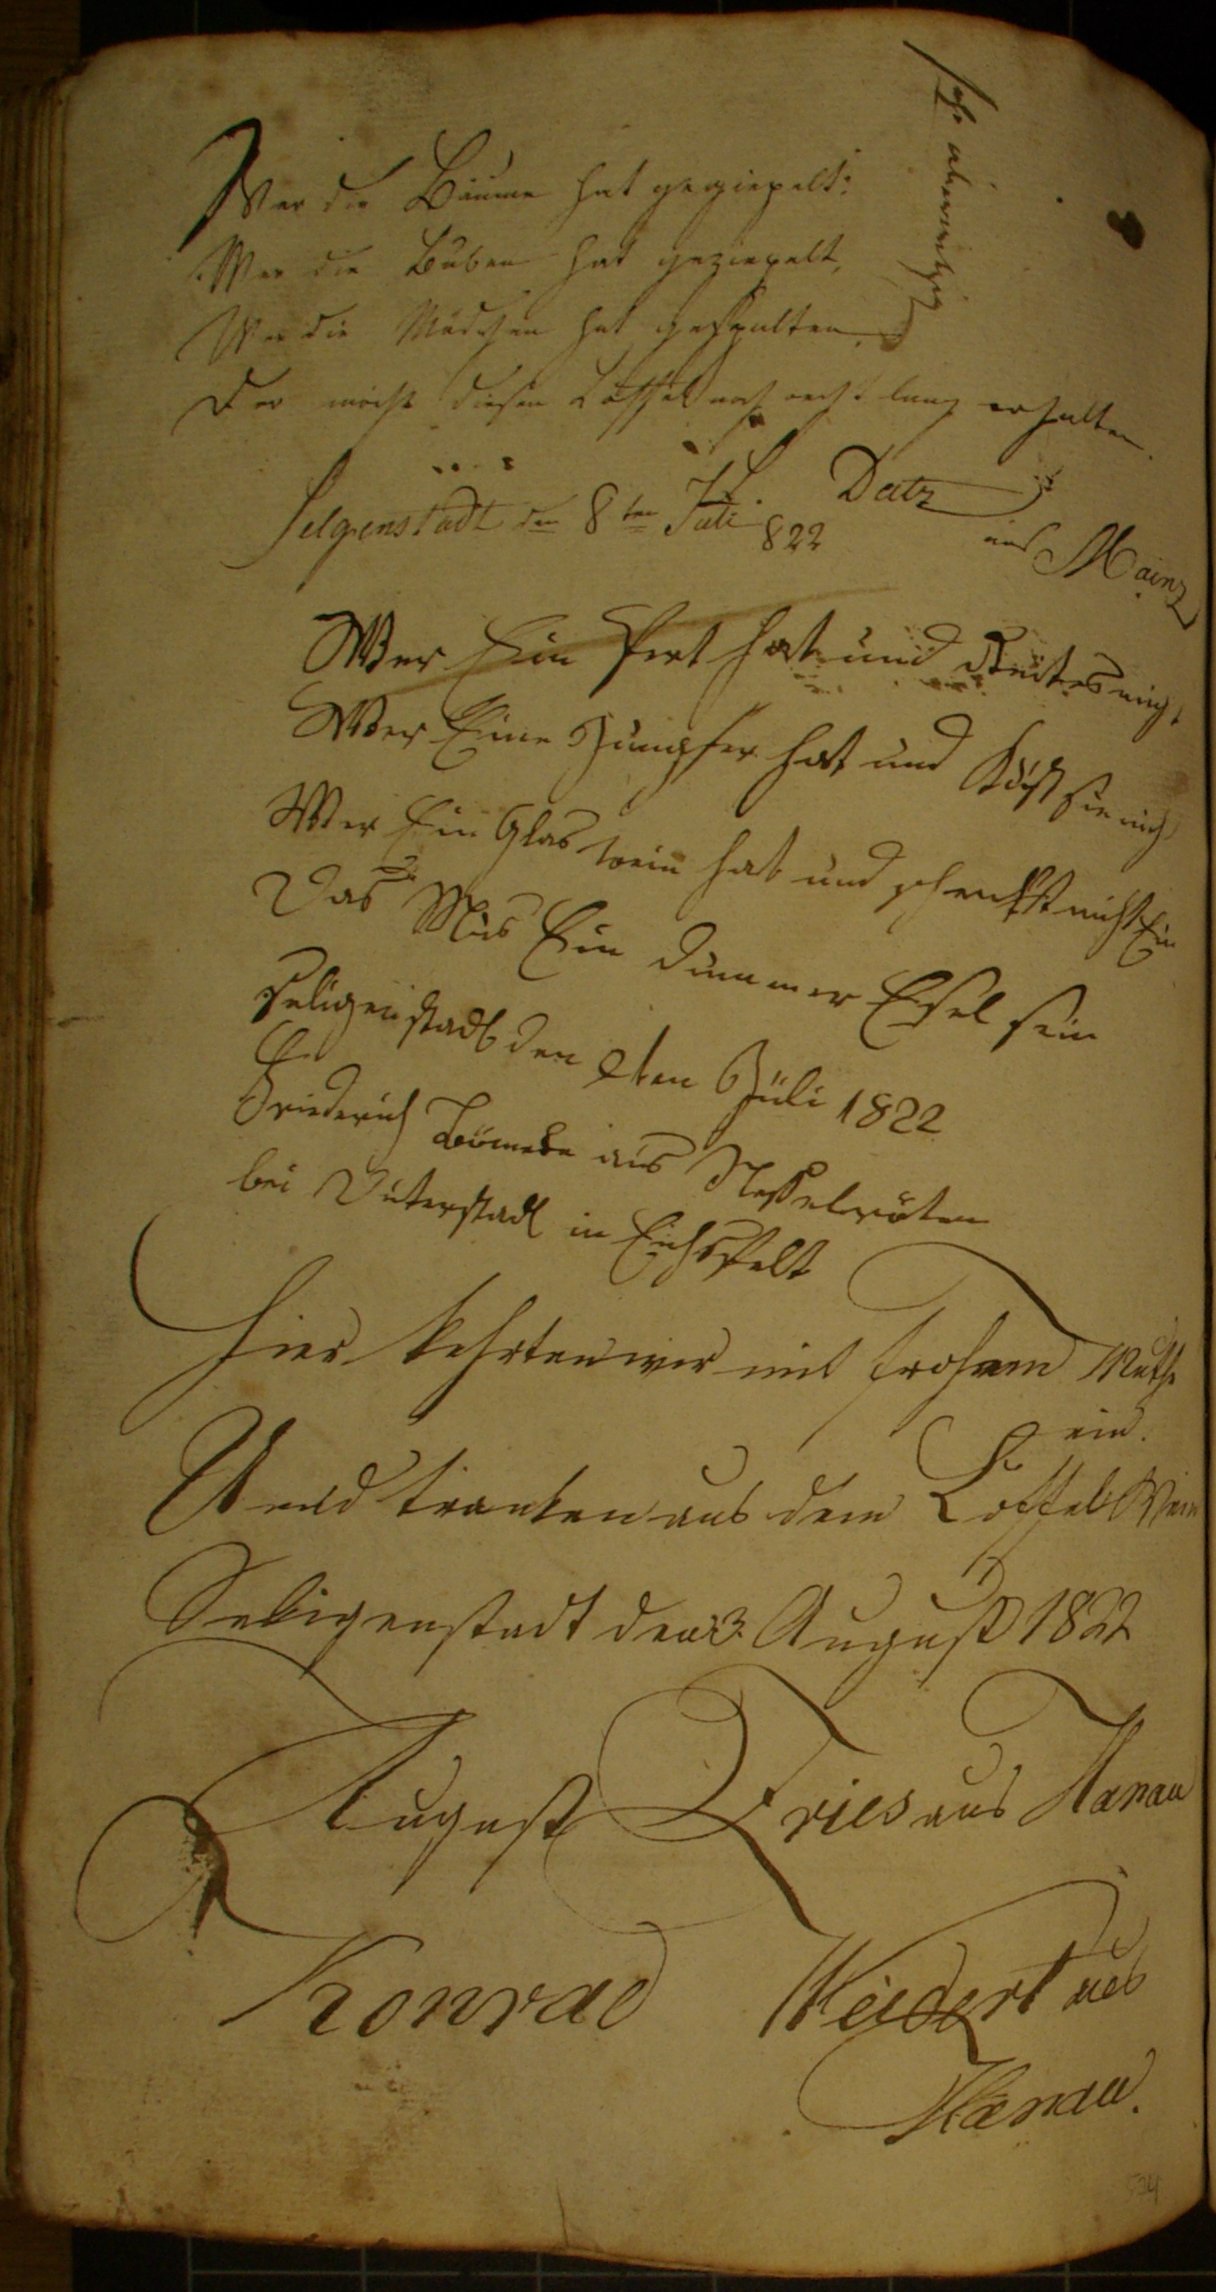 Wer die Bäume hat gegiepelt:
Wer die Buben hat geziepelt,
Wer die Mädchen hat gespalten,
Der möcht diesen Löffel noch recht lang erhalten
sehr aberwitzig
Selgenstadt den 8ten Juli 822
Datz
aus Mainz
Wer Ein Pert hat und Reites nicht
Wer Eine Jumpfer hat und Küst sie nicht
Wer Ein Glas wein hat und schenkst nicht Ein
Das Mus Ein dummer Esel sein
Seligenstadt den 9ten Jüli 1822
Friederich Bömeke aus Nesselröten
bei Duterstadt in Eichsfelt
Hier kehrten wir mit frohem Muthe
ein.
Und tranken aus dem Löffel Wein
Seligenstadt den 3. August 1822
August Fries aus Hanau
Konrad Weidert aus
Hanau.